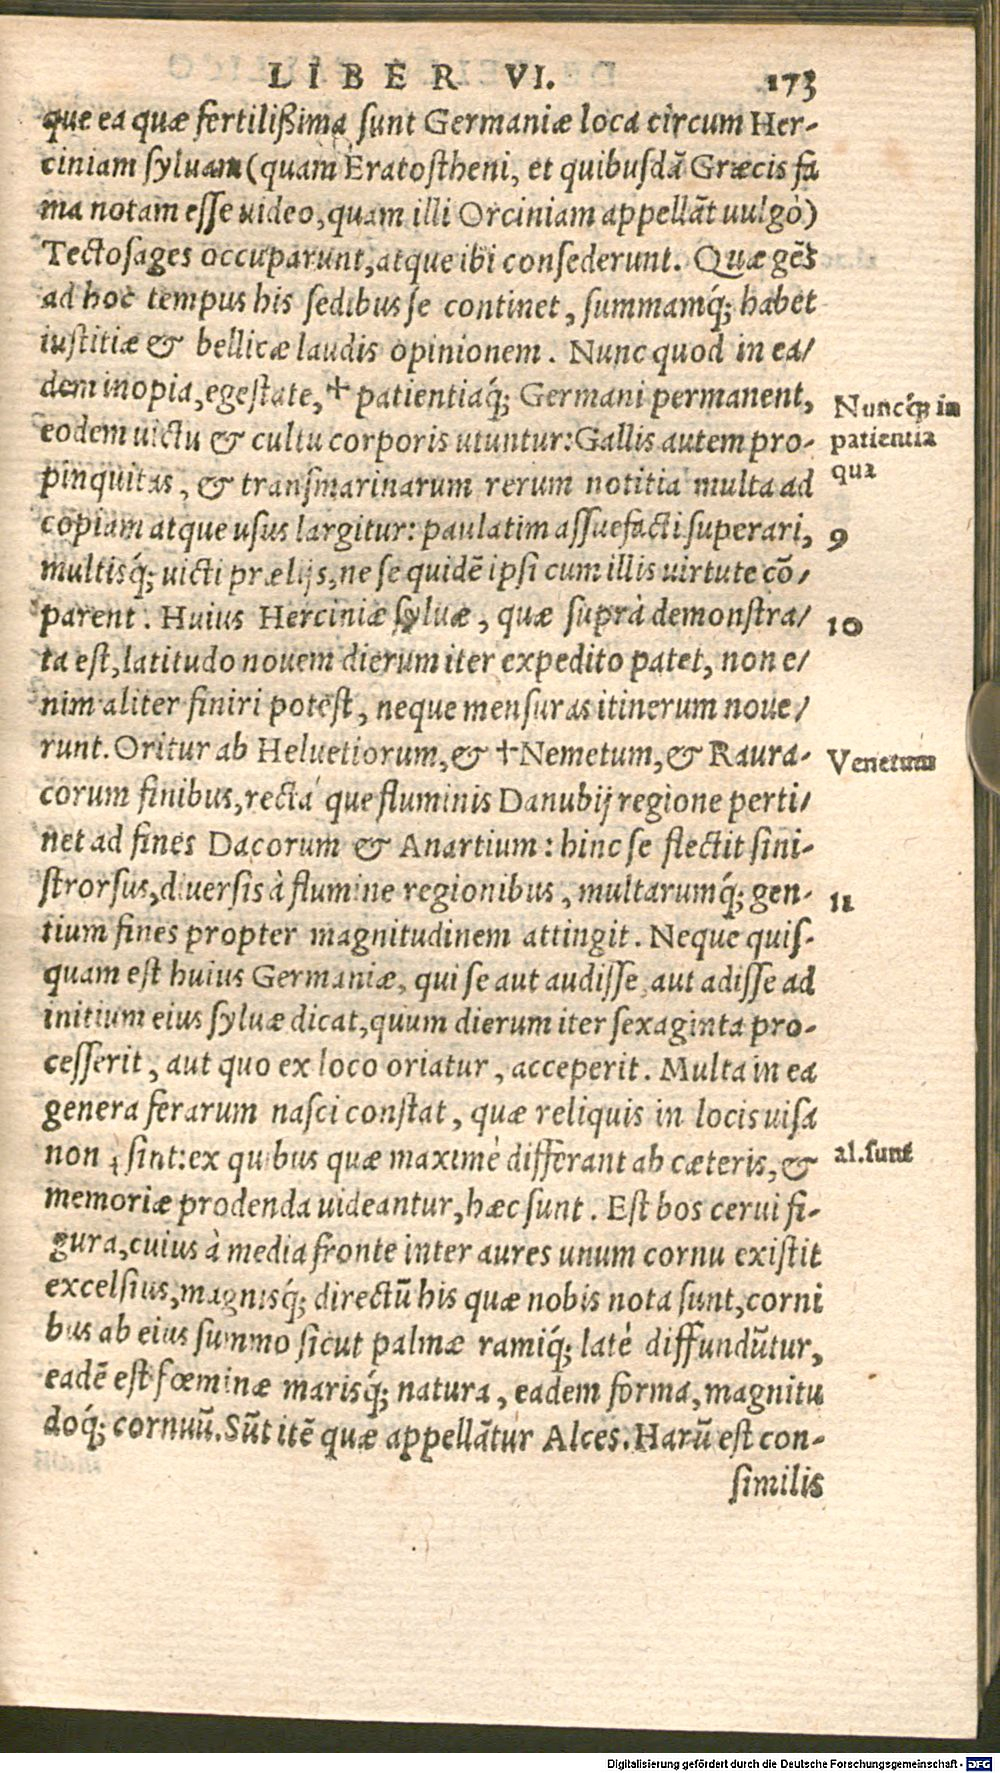 LIBER VI. 173
que ea quæ fertilißima sunt Germaniæ loca circum Her-
ciniam syluam (quam Eratostheni, et quibusdā Græcis fa
ma notam esse uideo, quam illi Orciniam appellāt uulgò)
Tectosages occuparunt, atque ibi consederunt. Quæ gēs
ad hoc tempus his sedibus se continet, summamq́; habet
iustitiæ & bellicæ laudis opinionem. Nunc quod in ea/
dem inopia, egestate, ✝ patientiaq́; Germani permanent,
Nuncq́ꝫ in
patientia
qua
eodem uictu & cultu corporis utuntur: Gallis autem pro-
pinquitas, & transmarinarum rerum notitia multa ad
copiam atque usus largitur: paulatim assuefacti superari,
9
multisq́; uicti prælijs, ne se quidē ipsi cum illis uirtute cō/
parent. Huius Herciniæ syluæ, quæ suprà demonstra/
10
ta est, latitudo nouem dierum iter expedito patet, non e/
nim aliter finiri potest, neque mensuras itinerum noue/
runt. Oritur ab Heluetiorum, & ✝ Nemetum, & Raura-
Venetum
corum finibus, rectá que fluminis Danubij regione perti/
net ad fines Dacorum & Anartium: hinc se flectit sini-
strorsus, diuersis à flumine regionibus, multarumq́; gen-
11
tium fines propter magnitudinem attingit. Neque quis-
quam est huius Germaniæ, qui se aut audisse, aut adisse ad
initium eius syluæ dicat, quum dierum iter sexaginta pro-
cesserit, aut quo ex loco oriatur, acceperit. Multa in ea
genera ferarum nasci constat, quæ reliquis in locis uisa
non sint: ex quibus quæ maximè differant ab cæteris, &
al. sunt
memoriæ prodenda uideantur, hæc sunt. Est bos cerui fi-
gura, cuius à media fronte inter aures unum cornu existit
excelsius, magnisq́; directū his quæ nobis nota sunt, corni
bus ab eius summo sicut palmæ ramiq́; latè diffundūtur,
eadē est fœminæ marisq́; natura, eadem forma, magnitu
doq́; cornuū. Sūt itē quæ appellātur Alces. Harū est con-
similis
Digitalisierung gefördert durch die Deutsche Forschungsgemeinschaft - DFG